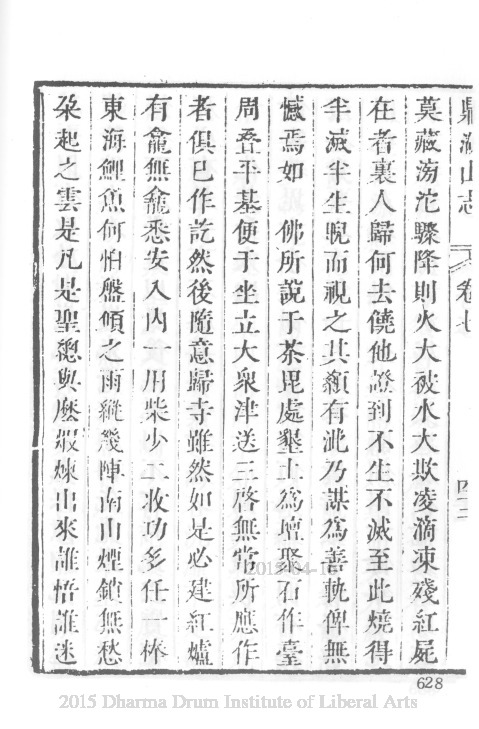 鼎湖山志 卷七 四二
莫藏滂沱驟降則火大被水大欺凌滴凍殘紅屍
在者裏人歸何去饒他證到不生不滅至此燒得
半滅半生睨而視之其顙有泚乃謀為善軌俾無
憾焉如 佛所說于茶毘處墾土為壇聚石作臺
周叠平基便于坐立大衆津送三啓無常所應作
者俱已作訖然後隨意歸寺雖然如是必建紅爐
有龕無龕悉安入內一用柴少二收功多任一棒
東海鯉魚何怕盤傾之雨縱幾陣南山煙鎖無愁
朶起之雲是凡是聖總與麼煅煉出來誰悟誰迷
2015-04-
628
2015 Dharma Drum Institute of Liberal Arts